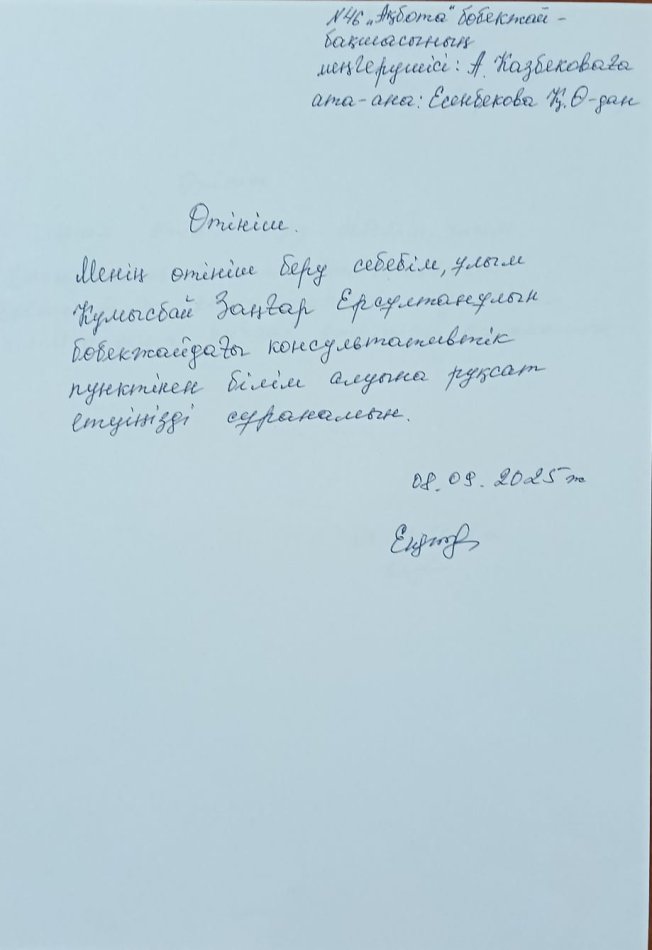 №46 „Ақбота“ бөбекжай-
бақшасының
меңгерушісі: А. Казбековаға
ата-ана: Есенбекова Қ.Ө-дан
Өтініш.
Менің өтініш беру себебім, ұлым
Күмысбай Заңғар Ерсұлтанұлын
бөбекжайдағы консультативтік
пунктінен білім алуына рұқсат
етуіңізді сұранамын.
08.09.2025ж